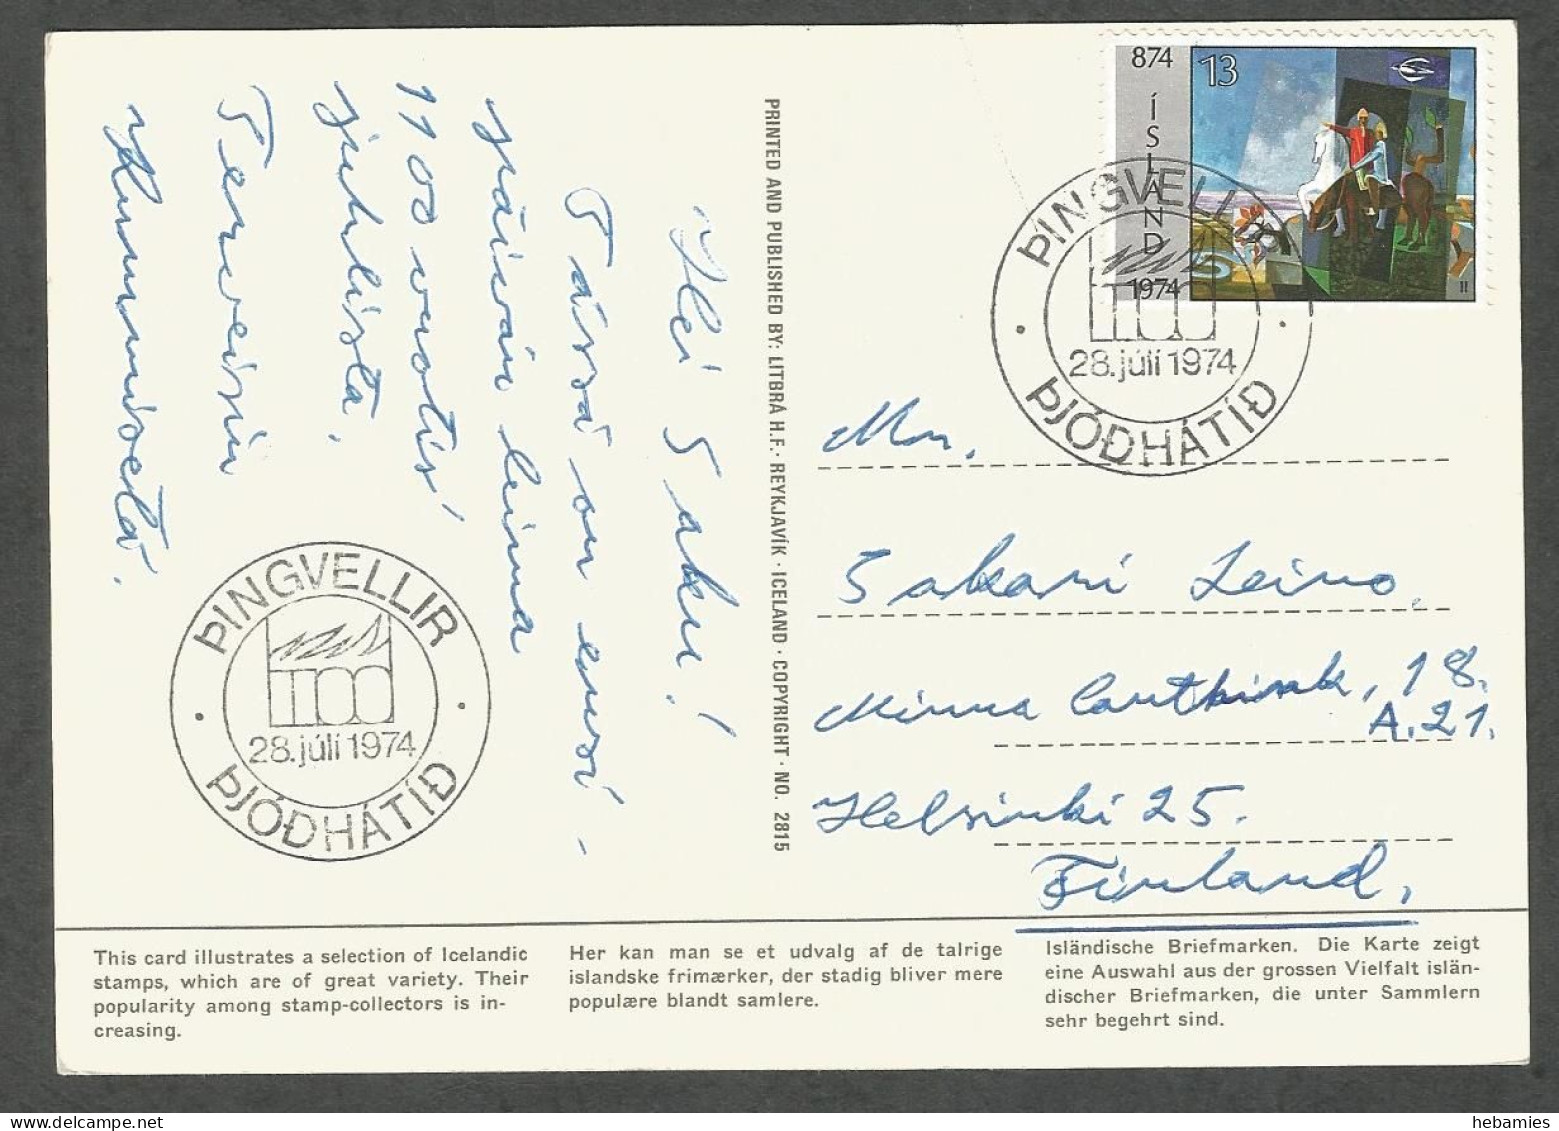 Hei Saku!
Tässä on ensi-
päivän leima
1100 vuotis
juhlista.
Terveisin
874
ÍSLAND
1974
13
ÞINGVELLIR
1100
28. júlí 1974
ÞJÓÐHÁTÍÐ
PRINTED AND PUBLISHED BY: LITBRÁ H.F. · REYKJAVÍK · ICELAND · COPYRIGHT · NO. 2815
Mr.
Sakari Leino.
18.
A.21.
Helsinki 25.
Finland,
ÞINGVELLIR
1100
28. júlí 1974
ÞJÓÐHÁTÍÐ
This card illustrates a selection of Icelandic
stamps, which are of great variety. Their
popularity among stamp-collectors is in-
creasing.
Her kan man se et udvalg af de talrige
islandske frimærker, der stadig bliver mere
populære blandt samlere.
Isländische Briefmarken. Die Karte zeigt
eine Auswahl aus der grossen Vielfalt islän-
discher Briefmarken, die unter Sammlern
sehr begehrt sind.
hebamies